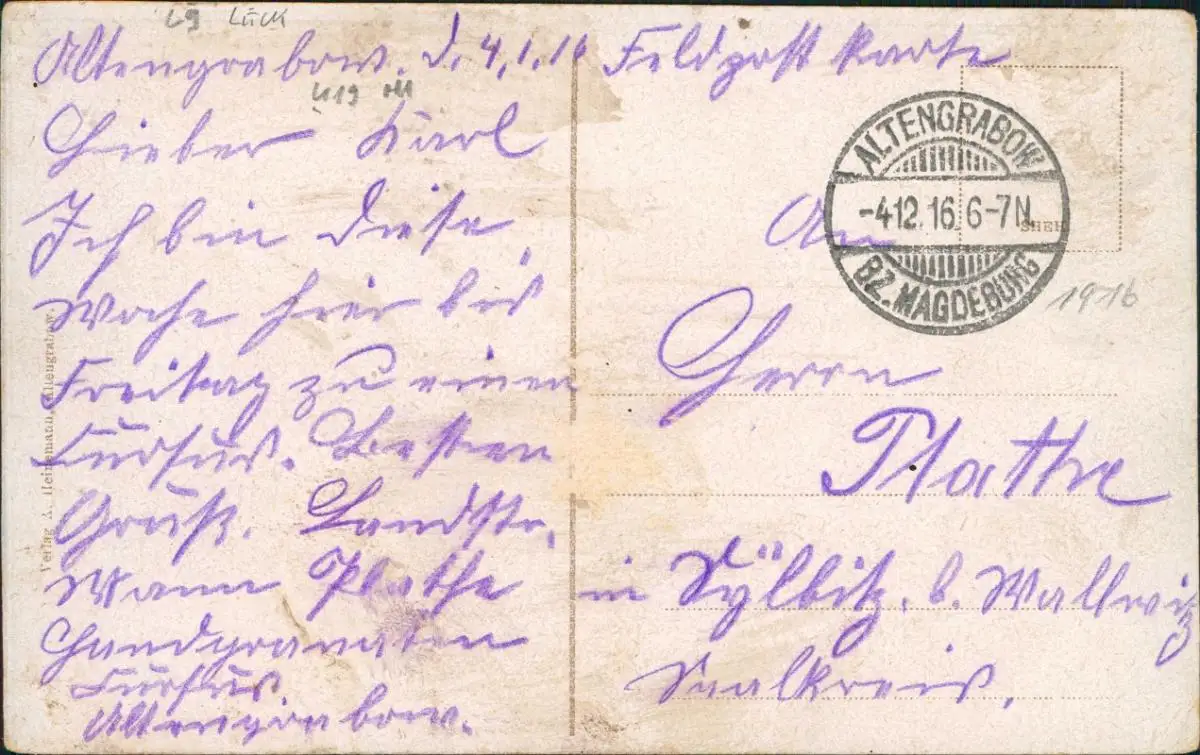 Lg Lück
Altengrabow. d. 4.1.16
419
Lieber Karl
Ich bin diese
Woche hier bis
Freitag zu einen
Kursus. Besten
Gruß. Landstr.
Mann Plathe
Handgranaten
Kursus.
Altengrabow.
Verlag A. Heinemann, Altengrabow.
Feldpostkarte
ALTENGRABOW
-4.12.16. 6-7N.
BZ. MAGDEBURG
1916
An
Herrn
Plathe
in Sylbitz. b. Wallwitz
Saalkreis.